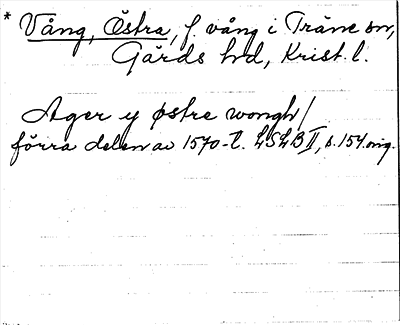 * Vång, Östra, f. vång i Träne sn,
Gärds hd, Krist. l.
Ager y østre wongh/
förra delen av 1570-t. LSLB II, s. 154 orig.